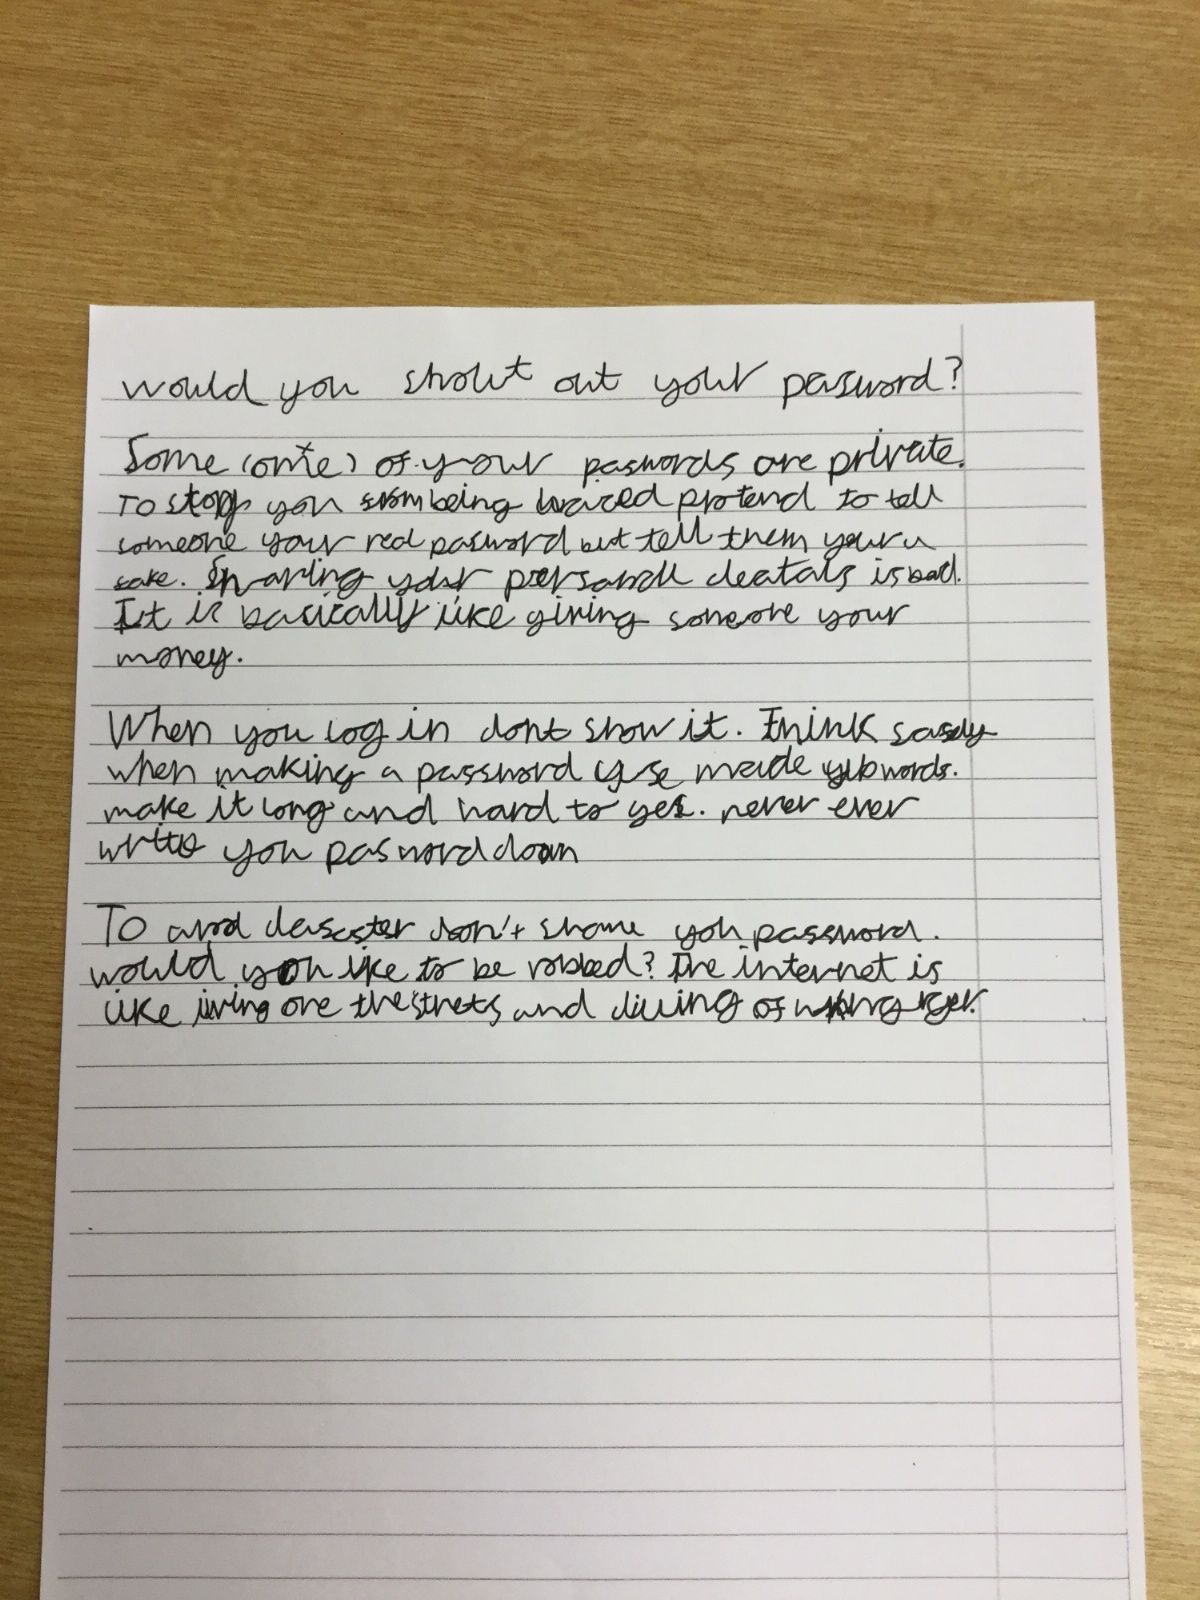 would you shout out your pasword?
Some of your paswords are private.
To stop you from being pretend to tell
someone your real pasword but tell them your
fake. Sharing your deatals is bad.
It is basically like giving someone your
money.
When you log in dont show it. Think safely
when making a password use made up words.
make it long and hard to never ever
write you pasword down
To desaster don't share you password.
would you like to be robbed? The internet is
like living one the streets and of